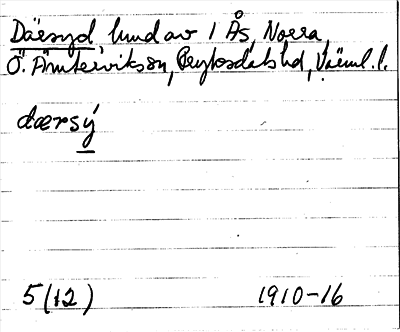 Däesyd, hmd av 1 Ås, Norra,
Ö. Ämtervik sn, Fryksdals hd, Värml. l.
dærsý̲
5(12) 1910-16